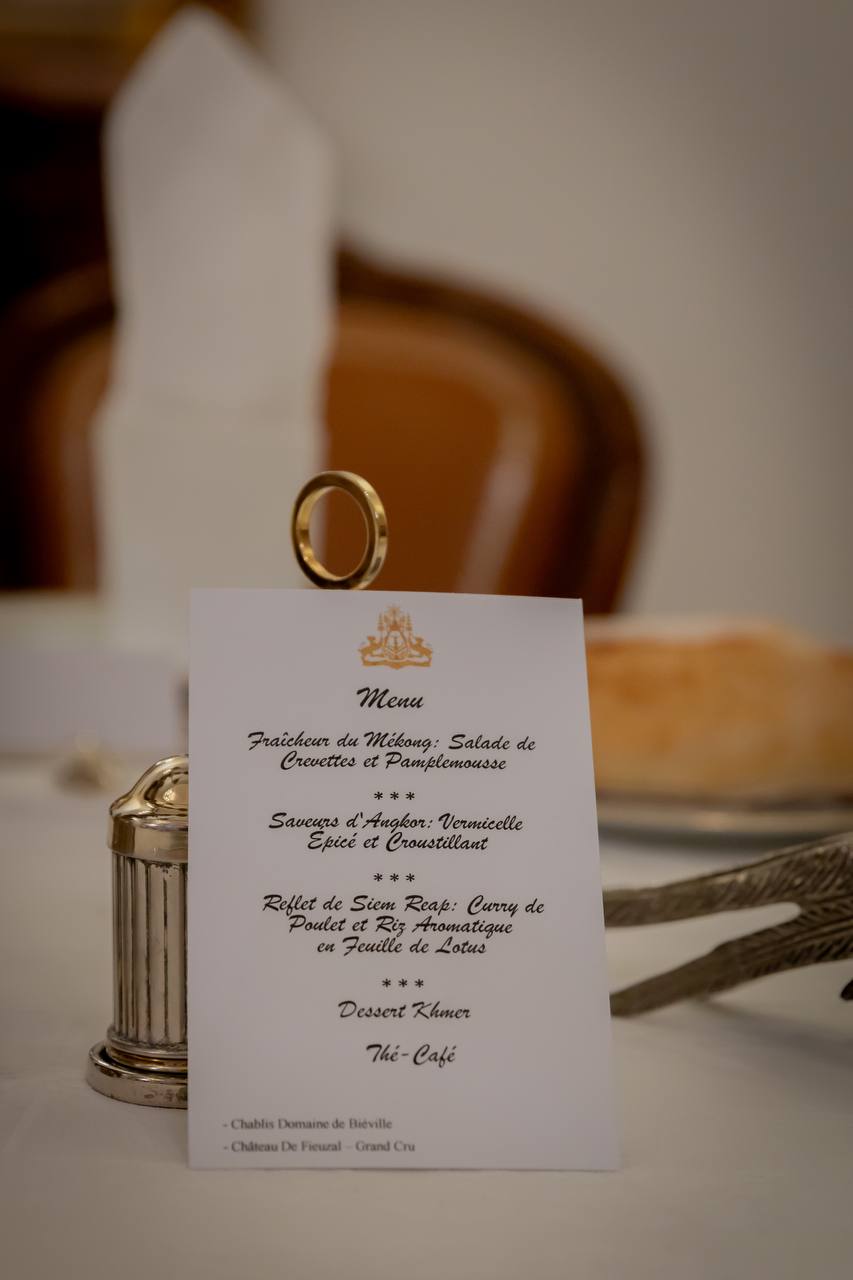 Menu
Fraîcheur du Mékong: Salade de
Crevettes et Pamplemousse
***
Saveurs d'Angkor: Vermicelle
Épicé et Croustillant
***
Reflet de Siem Reap: Curry de
Poulet et Riz Aromatique
en Feuille de Lotus
***
Dessert Khmer
Thé-Café
- Chablis Domaine de Biéville
- Château De Fieuzal – Grand Cru